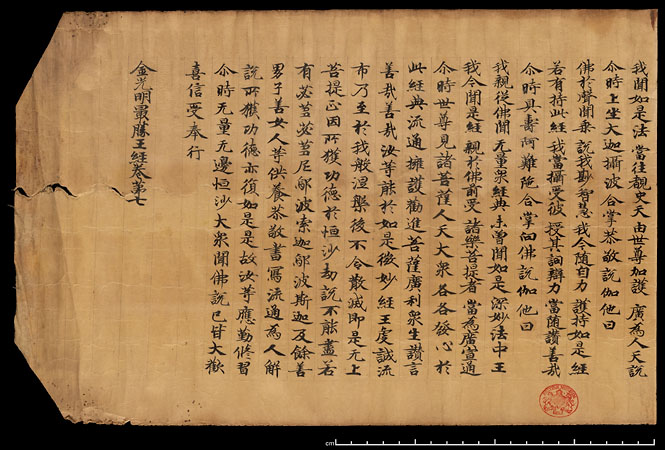 我聞如是法 當往覩史天 由世尊加護 廣為人天說
尒時上坐大迦攝波合掌恭敬說伽他曰
佛於聲聞乘 說我尠智慧 我今隨自力 護持如是經
若有持此經 我當攝受彼 授其詞辯力 常隨讚善哉
尒時具壽阿難陀合掌向佛說伽他曰
我親從佛聞 无量眾經典 未曾聞如是 深妙法中王
我今聞是經 親於佛前受 諸樂菩提者 當為廣宣通
尒時世尊見諸菩薩人天大眾各各發心於
此經典流通擁護勸進菩薩廣利眾生讚言
善哉善哉汝等能於如是微妙經王虔誠流
布乃至於我般涅槃後不令散滅即是无上
菩提正因所獲功德於恒沙劫說不能盡若
有苾芻苾芻尼鄔波索迦鄔波斯迦及餘善
男子善女人等供養恭敬書寫流通為人解
說所獲功德亦復如是是故汝等應勤修習
尒時无量无邊恒沙大眾聞佛說已皆大歡
喜信受奉行
金光明最勝王經卷第七
cm